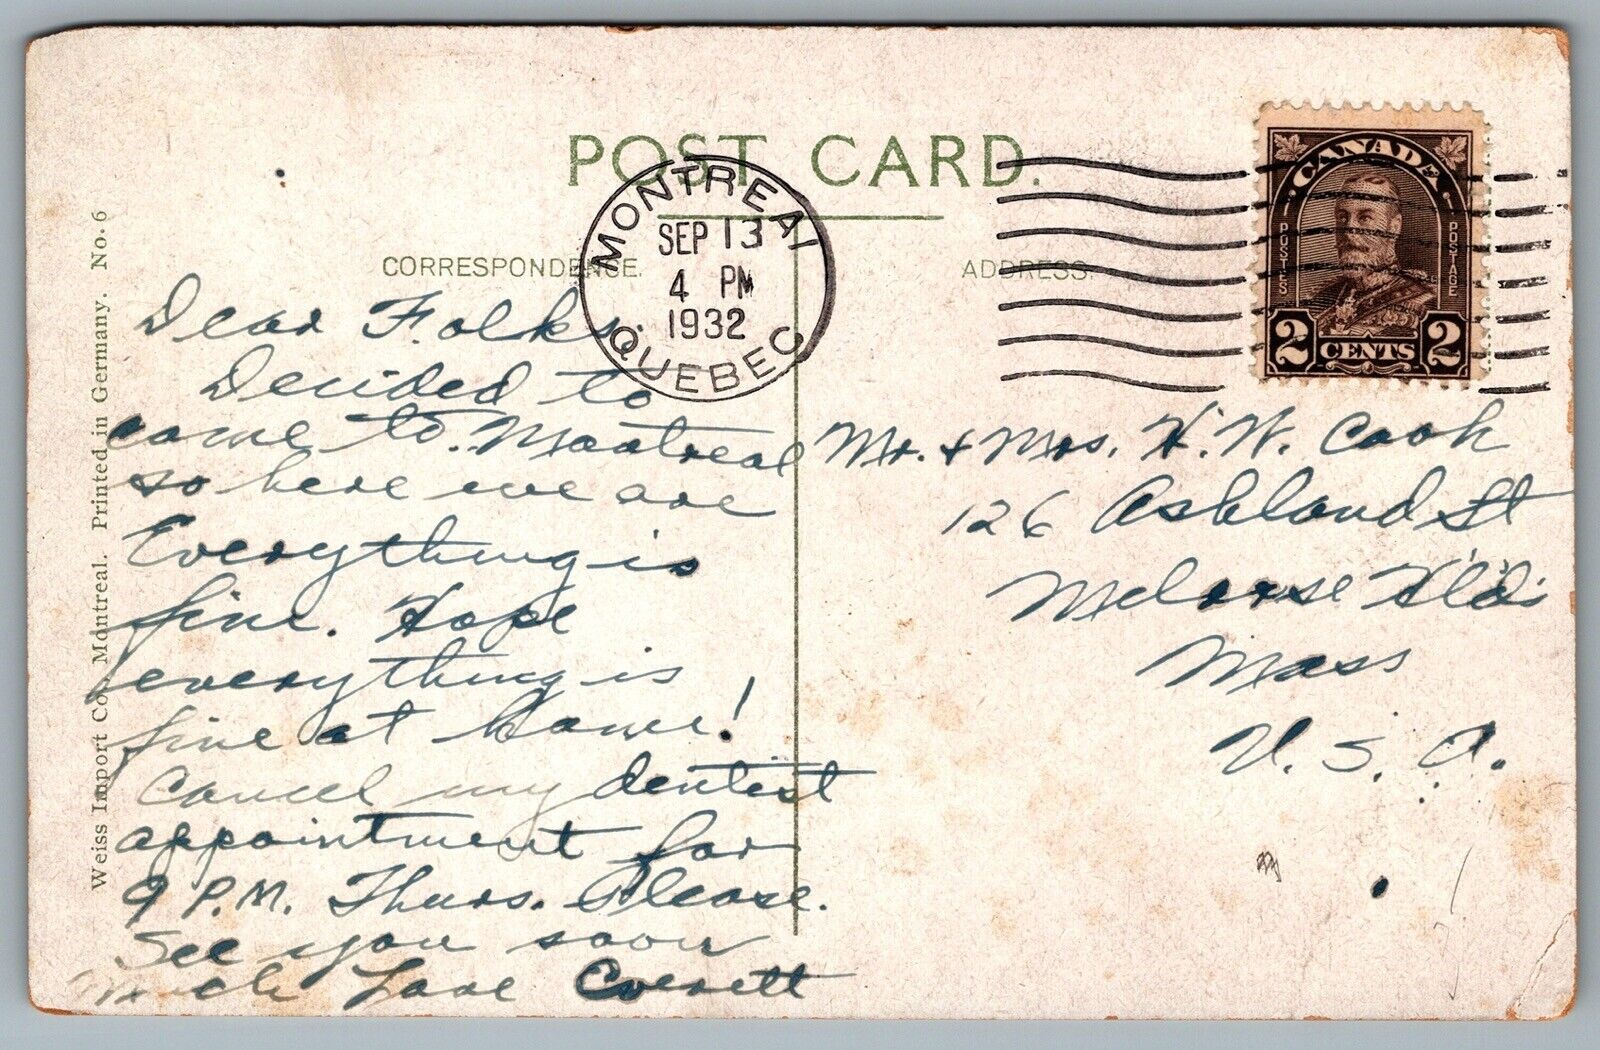 POST CARD.
MONTREAL
SEP 13
4 PM
1932
QUEBEC
CANADA
POSTES
POSTAGE
2 CENTS 2
CORRESPONDENCE.
ADDRESS.
Dear Folks,
Decided to
come to Montreal
so here we are
Everything is
fine. Hope
everything is
fine at home!
Cancel my dentist
appointment for
9 P.M. Thurs. Please.
See you soon
Much Love Everett
Mr. & Mrs. H. W. Cook
126 Ashland St
Melrose H'ld's
Mass
U. S. A.
Weiss Import Co. Montreal. Printed in Germany. No. 6